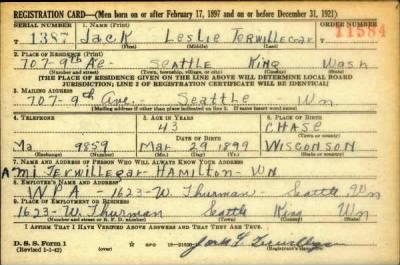 REGISTRATION CARD—(Men born on or after February 17, 1897 and on or before December 31, 1921)
SERIAL NUMBER 1. NAME (Print) ORDER NUMBER
1387 Jack Leslie Terwillegar 11584
(First) (Middle) (Last)
2. PLACE OF RESIDENCE (Print)
707-9th Ae- Seattle King Wash
(Number and street) (Town, township, village, or city) (County) (State)
[THE PLACE OF RESIDENCE GIVEN ON THE LINE ABOVE WILL DETERMINE LOCAL BOARD
JURISDICTION; LINE 2 OF REGISTRATION CERTIFICATE WILL BE IDENTICAL]
3. MAILING ADDRESS
707-9th Ave. Seattle Wn
[Mailing address if other than place indicated on line 2. If same insert word same]
4. TELEPHONE 5. AGE IN YEARS 6. PLACE OF BIRTH
43 CHASE
DATE OF BIRTH (Town or county)
Ma 9859 Mar 29 1899 WISCONSON
(Exchange) (Number) (Mo.) (Day) (Yr.) (State or country)
7. NAME AND ADDRESS OF PERSON WHO WILL ALWAYS KNOW YOUR ADDRESS
Ami Terwillegar Hamilton-Wn
8. EMPLOYER'S NAME AND ADDRESS
WPA - 1623-W. Thurman- Seattle, Wn
9. PLACE OF EMPLOYMENT OR BUSINESS
1623-W. Thurman Seattle King Wn
(Number and street or R. F. D. number) (Town) (County) (State)
I AFFIRM THAT I HAVE VERIFIED ABOVE ANSWERS AND THAT THEY ARE TRUE.
D. S. S. Form 1
(Revised 1-1-42) (over)